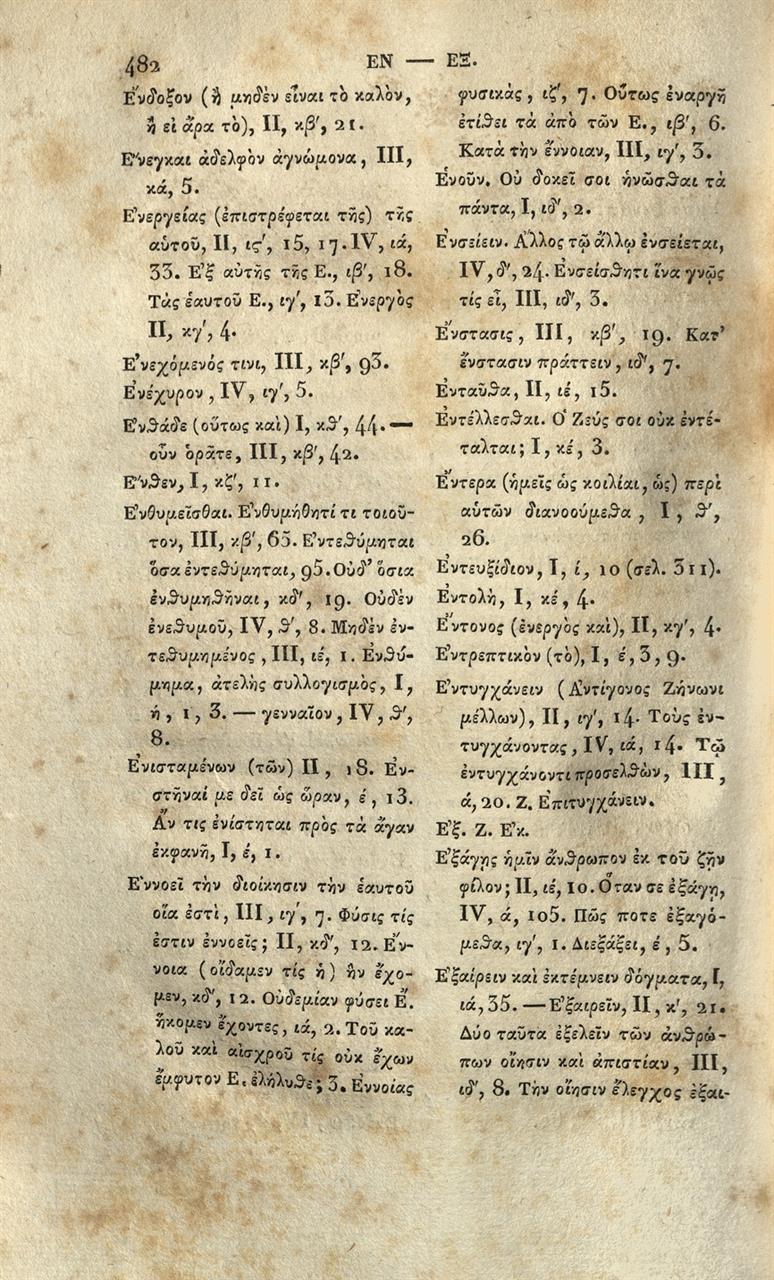 482
ΕΝ — ΕΞ.
Ἔνδοξον (ἢ μηδὲν εἶναι τὸ καλὸν,
ἢ εἰ ἄρα τὸ), II, κβ', 21.
Ἐνεγκαι ἀδελφὸν ἀγνώμονα, III,
κά, 5.
Ἐνεργείας (ἐπιστρέφεται τῆς) τῆς
αὑτοῦ, II, ις', 15, 17. IV, ιά,
33. Ἐξ αὐτῆς τῆς Ε., ιβ', 18.
Τὰς ἑαυτοῦ Ε., ιγ', 13. Ἐνεργὸς
II, κγ', 4.
Ἐνεχόμενός τινι, III, κβ', 93.
Ἐνέχυρον, IV, ιγ', 5.
Ἐνθάδε (οὕτως καὶ) I, κθ', 44. —
οὖν ὁρᾶτε, III, κβ', 42.
Ἔνθεν, I, κζ', 11.
Ἐνθυμεῖσθαι. Ἐνθυμήθητί τι τοιοῦ-
τον, III, κβ', 65. Ἐντεθύμηται
ὅσα ἐντεθύμηται, 95. Οὐδ' ὅσια
ἐνθυμηθῆναι, κδ', 19. Οὐδὲν
ἐνεθυμοῦ, IV, θ', 8. Μηδὲν ἐν-
τεθυμημένος, III, ιέ, 1. Ἐνθύ-
μημα, ἀτελὴς συλλογισμὸς, I,
ή, 1, 3. — γενναῖον, IV, θ',
8.
Ἐνισταμένων (τῶν) II, 18. Ἐν-
στῆναί με δεῖ ὡς ὥραν, έ, 13.
Ἄν τις ἐνίστηται πρὸς τὰ ἄγαν
ἐκφανῆ, I, έ, 1.
Ἐννοεῖ τὴν διοίκησιν τὴν ἑαυτοῦ
οἵα ἐστὶ, III, ιγ', 7. Φύσις τίς
ἐστιν ἐννοεῖς; II, κδ', 12. Ἔν-
νοια (οἴδαμεν τίς ἡ) ἣν ἔχο-
μεν, κδ', 12. Οὐδεμίαν φύσει Ἐ.
ἥκομεν ἔχοντες, ιά, 2. Τοῦ κα-
λοῦ καὶ αἰσχροῦ τίς οὐκ ἔχων
ἔμφυτον Ε. ἐλήλυθε; 3. Ἐννοίας
φυσικὰς, ιζ', 7. Οὕτως ἐναργῆ
ἐτίθει τὰ ἀπὸ τῶν Ε., ιβ', 6.
Κατὰ τὴν ἔννοιαν, III, ιγ', 3.
Ἑνοῦν. Οὐ δοκεῖ σοι ἡνῶσθαι τὰ
πάντα, I, ιδ', 2.
Ἐνσείειν. Ἄλλος τῷ ἄλλῳ ἐνσείεται,
IV, δ', 24. Ἐνσείσθητι ἵνα γνῷς
τίς εἶ, III, ιδ', 3.
Ἔνστασις, III, κβ', 19. Κατ'
ἔνστασιν πράττειν, ιδ', 7.
Ἐνταῦθα, II, ιέ, 15.
Ἐντέλλεσθαι. Ὁ Ζεύς σοι οὐκ ἐντέ-
ταλται; I, κέ, 3.
Ἔντερα (ἡμεῖς ὡς κοιλίαι, ὡς) περὶ
αὐτῶν διανοούμεθα, I, θ',
26.
Ἐντευξίδιον, I, ί, 10 (σελ. 311).
Ἐντολὴ, I, κέ, 4.
Ἔντονος (ἐνεργὸς καὶ), II, κγ', 4.
Ἐντρεπτικὸν (τὸ), I, έ, 3, 9.
Ἐντυγχάνειν (Ἀντίγονος Ζήνωνι
μέλλων), II, ιγ', 14. Τοὺς ἐν-
τυγχάνοντας, IV, ιά, 14. Τῷ
ἐντυγχάνοντι προσελθὼν, III,
ά, 20. Ζ. Ἐπιτυγχάνειν.
Ἐξ. Ζ. Ἐκ.
Ἐξάγῃς ἡμῖν ἄνθρωπον ἐκ τοῦ ζῆν
φίλον; II, ιέ, 10. Ὅταν σε ἐξάγῃ,
IV, ά, 105. Πῶς ποτε ἐξαγό-
μεθα, ιγ', 1. Διεξάξει, έ, 5.
Ἐξαίρειν καὶ ἐκτέμνειν δόγματα, I,
ιά, 35. — Ἐξαιρεῖν, II, κ', 21.
Δύο ταῦτα ἐξελεῖν τῶν ἀνθρώ-
πων οἴησιν καὶ ἀπιστίαν, III,
ιδ', 8. Τὴν οἴησιν ἔλεγχος ἐξαι-